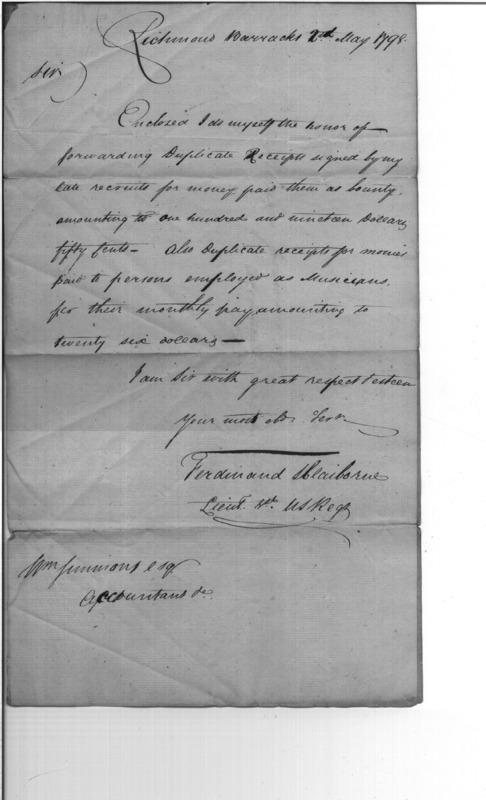 Richmond Barracks 2nd May 1798
Sir
Enclosed I do myself the honor of
forwarding Duplicate Receipts signed by my
late recruits for money paid them as bounty,
amounting to one hundred and nineteen Dollars
fifty Cents — Also Duplicate receipts for monies
paid to persons employed as Musicians,
for their monthly pay amounting to
twenty six dollars —
I am Sir with great respect & esteem
Your most Ob. Servt
Ferdinand L Claiborne
Lieut. US Regt
Wm Simmons esqr
Accountant